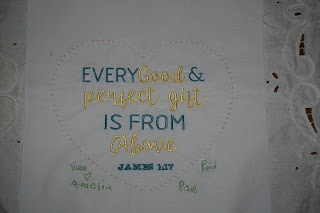 EVERY Good &
perfect gift
IS FROM
Above
JAMES 1:17
Amelia